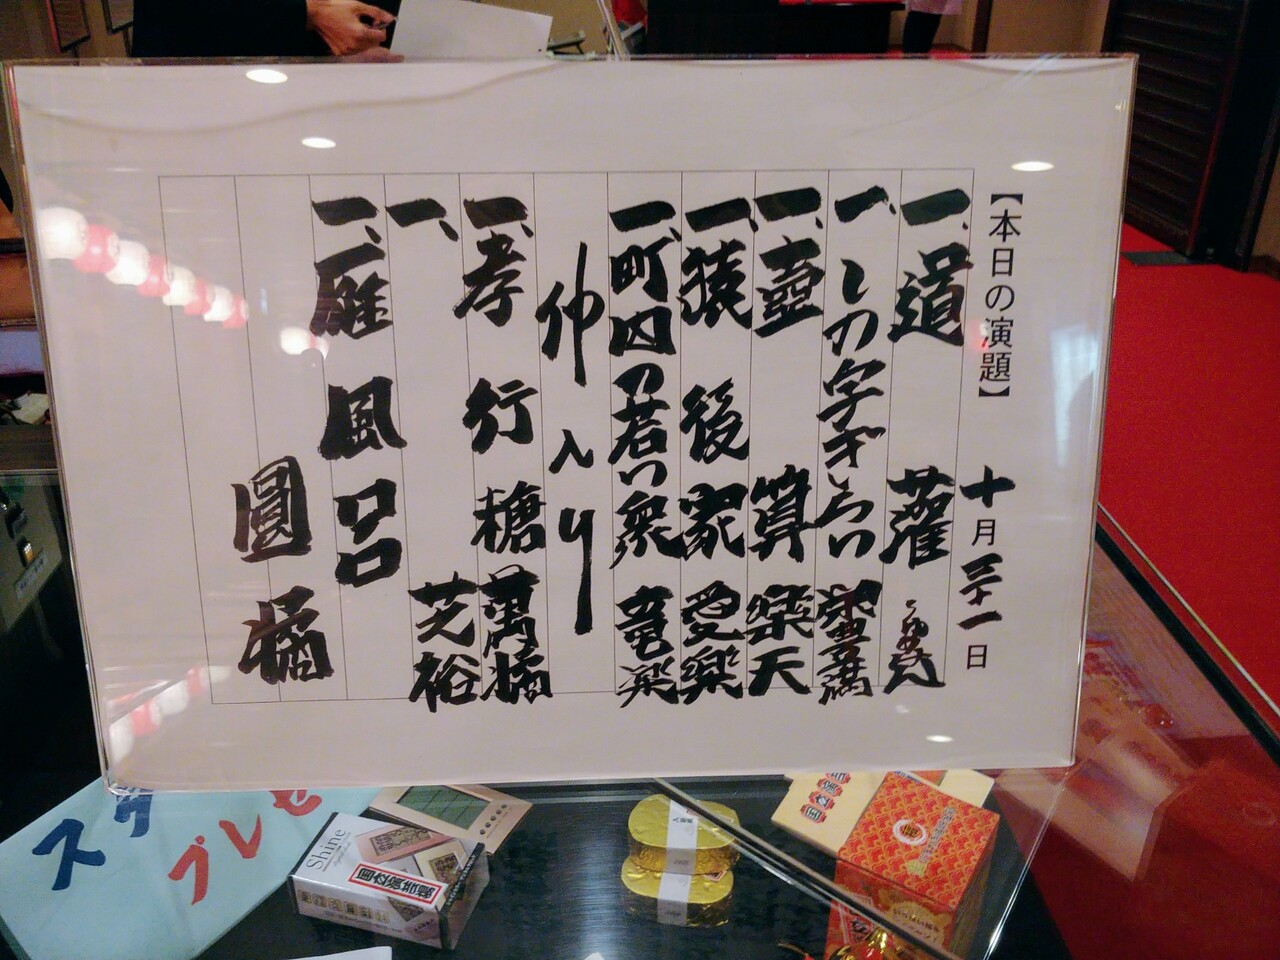 【本日の演題】
十月三十一日
一、道灌
一、しの字ぎらい
一、壺算 楽天
一、猿後家 愛楽
一、町内の若い衆 竜楽
仲入り
一、孝行糖 萬橘
一、芝裕
一、雁風呂
圓橘
スタ
プレゼ
Shine
国立演芸場